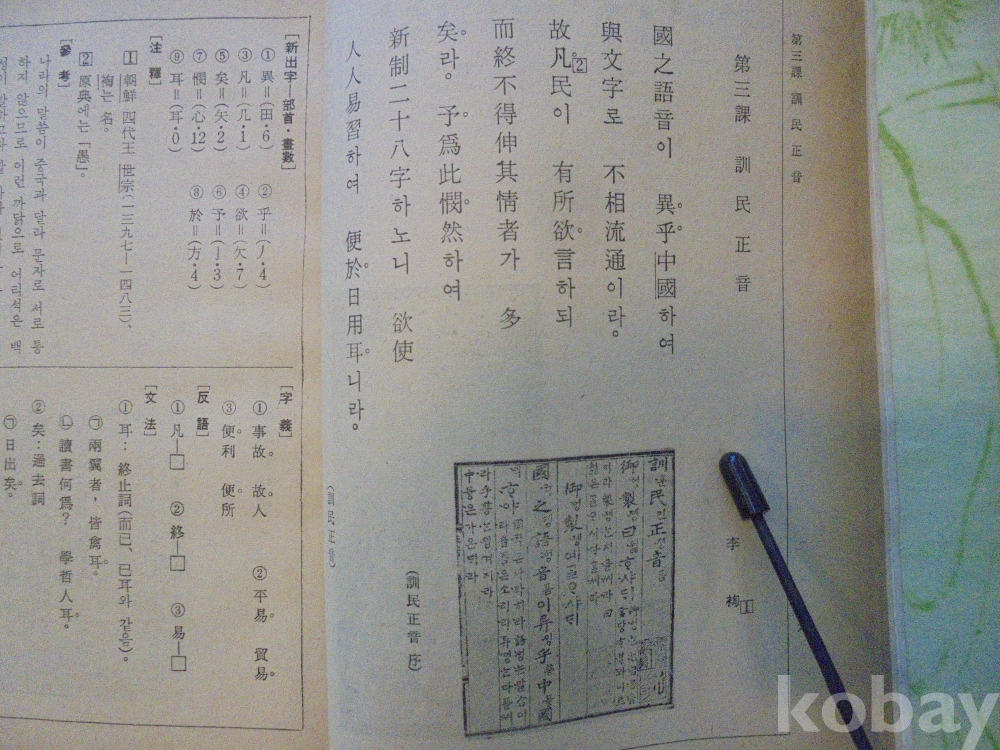 第三課 訓民正音
第三課 訓民正音
李 祹 1
國之語音이 異乎中國하여
與文字로 不相流通이라。
故凡民이 有所欲言하되
2
而終不得伸其情者가 多
矣라。予爲此憫然하여
新制二十八字하노니 欲使
人人易習하여 便於日用耳니라。
(訓民正音 序)
(訓民正音)
[新出字—部首·畫數]
① 異=(田·6) ② 乎=(丿·4)
③ 凡=(几·1) ④ 欲=(欠·7)
⑤ 矣=(矢·2) ⑥ 予=(亅·3)
⑦ 憫=(心·12) ⑧ 於=(方·4)
⑨ 耳=(耳·0)
[注 釋]
1 朝鮮 四代王 世宗(一三九七—一四八三)、
祹는 名。
2 原典에는「愚」。
[參 考]
나라의 말씀이 중국과 달라 문자로 서로 통
하지 않으므로 이런 까닭으로 어리석은 백
[字 義]
① 事故 故人 ② 平易 貿易
③ 便利 便所
[反 語]
① 凡—□ ② 終—□ ③ 易—□
[文 法]
① 耳：終止詞(而已、已耳와 같음)。
㉠ 兩翼者，皆禽耳。
㉡ 讀書何爲? 學哲人耳。
② 矣：過去詞
㉠ 日出矣。
kobay